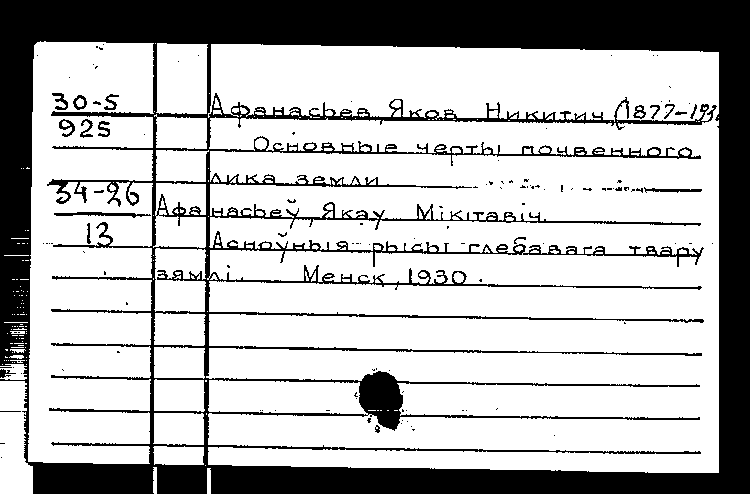 30-5 Афанасьев, Яков Никитич (1877-193
925 Основные черты почвенного
лика земли
34-26 Афанасьеў, Якаў Мікітавіч.
13 Асноўныя рысы глебавага твару
зямлі. Менск, 1930.